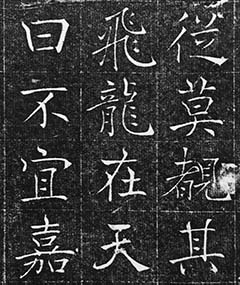 從莫覩其
飛龍在天
曰不宜嘉